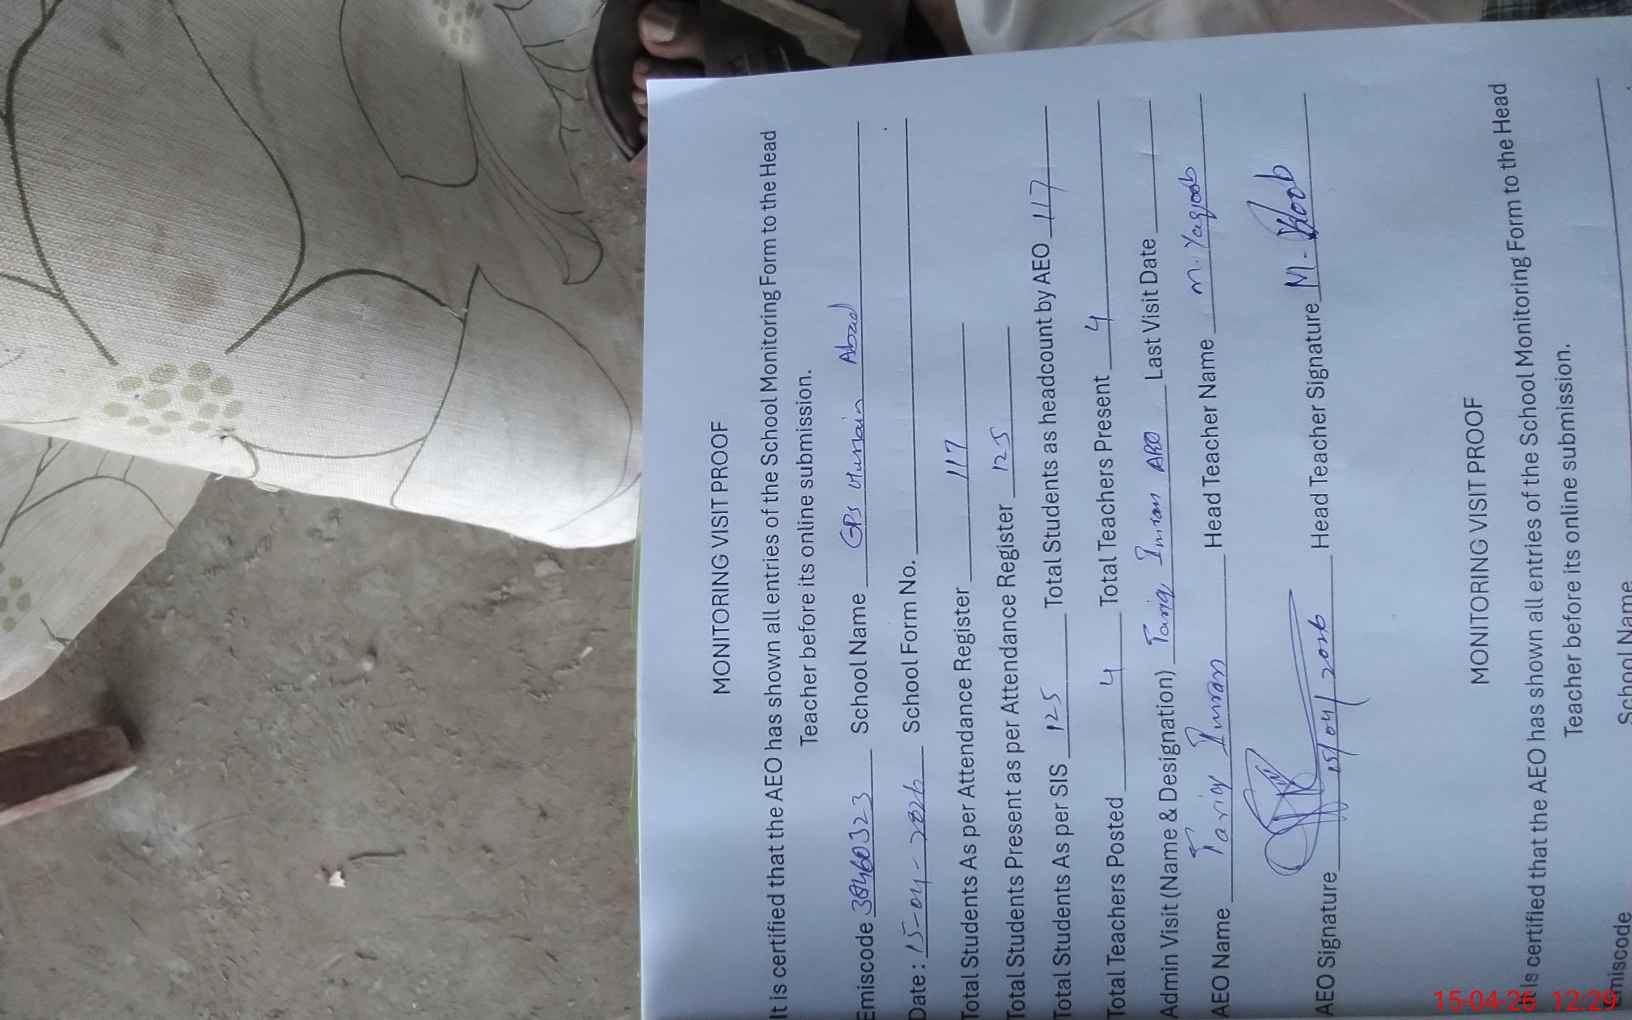 MONITORING VISIT PROOF
It is certified that the AEO has shown all entries of the School Monitoring Form to the Head
Teacher before its online submission.
Emiscode 38460323 School Name GPS Hussain Abad
Date: 15-04-2026 School Form No.
Total Students As per Attendance Register 117
Total Students Present as per Attendance Register 125
Total Students As per SIS 125 Total Students as headcount by AEO 117
Total Teachers Posted 4 Total Teachers Present 4
Admin Visit (Name & Designation) Tariq Imran AEO Last Visit Date
AEO Name Tariq Imran Head Teacher Name M. Yaqoob
AEO Signature 15/04/2026 Head Teacher Signature M.
MONITORING VISIT PROOF
It is certified that the AEO has shown all entries of the School Monitoring Form to the Head
Teacher before its online submission.
Emiscode School Name
15-04-26 12:29